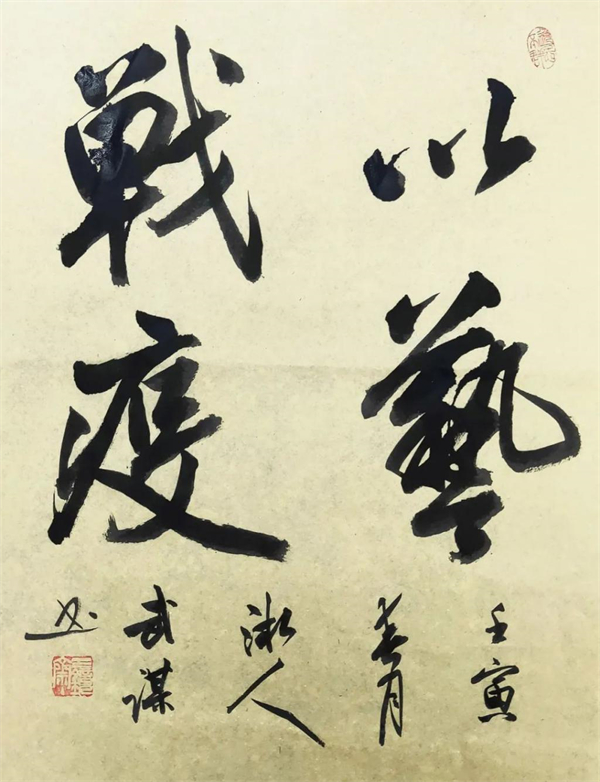 以藝
戰疫
壬寅
春月
人
武谋
书